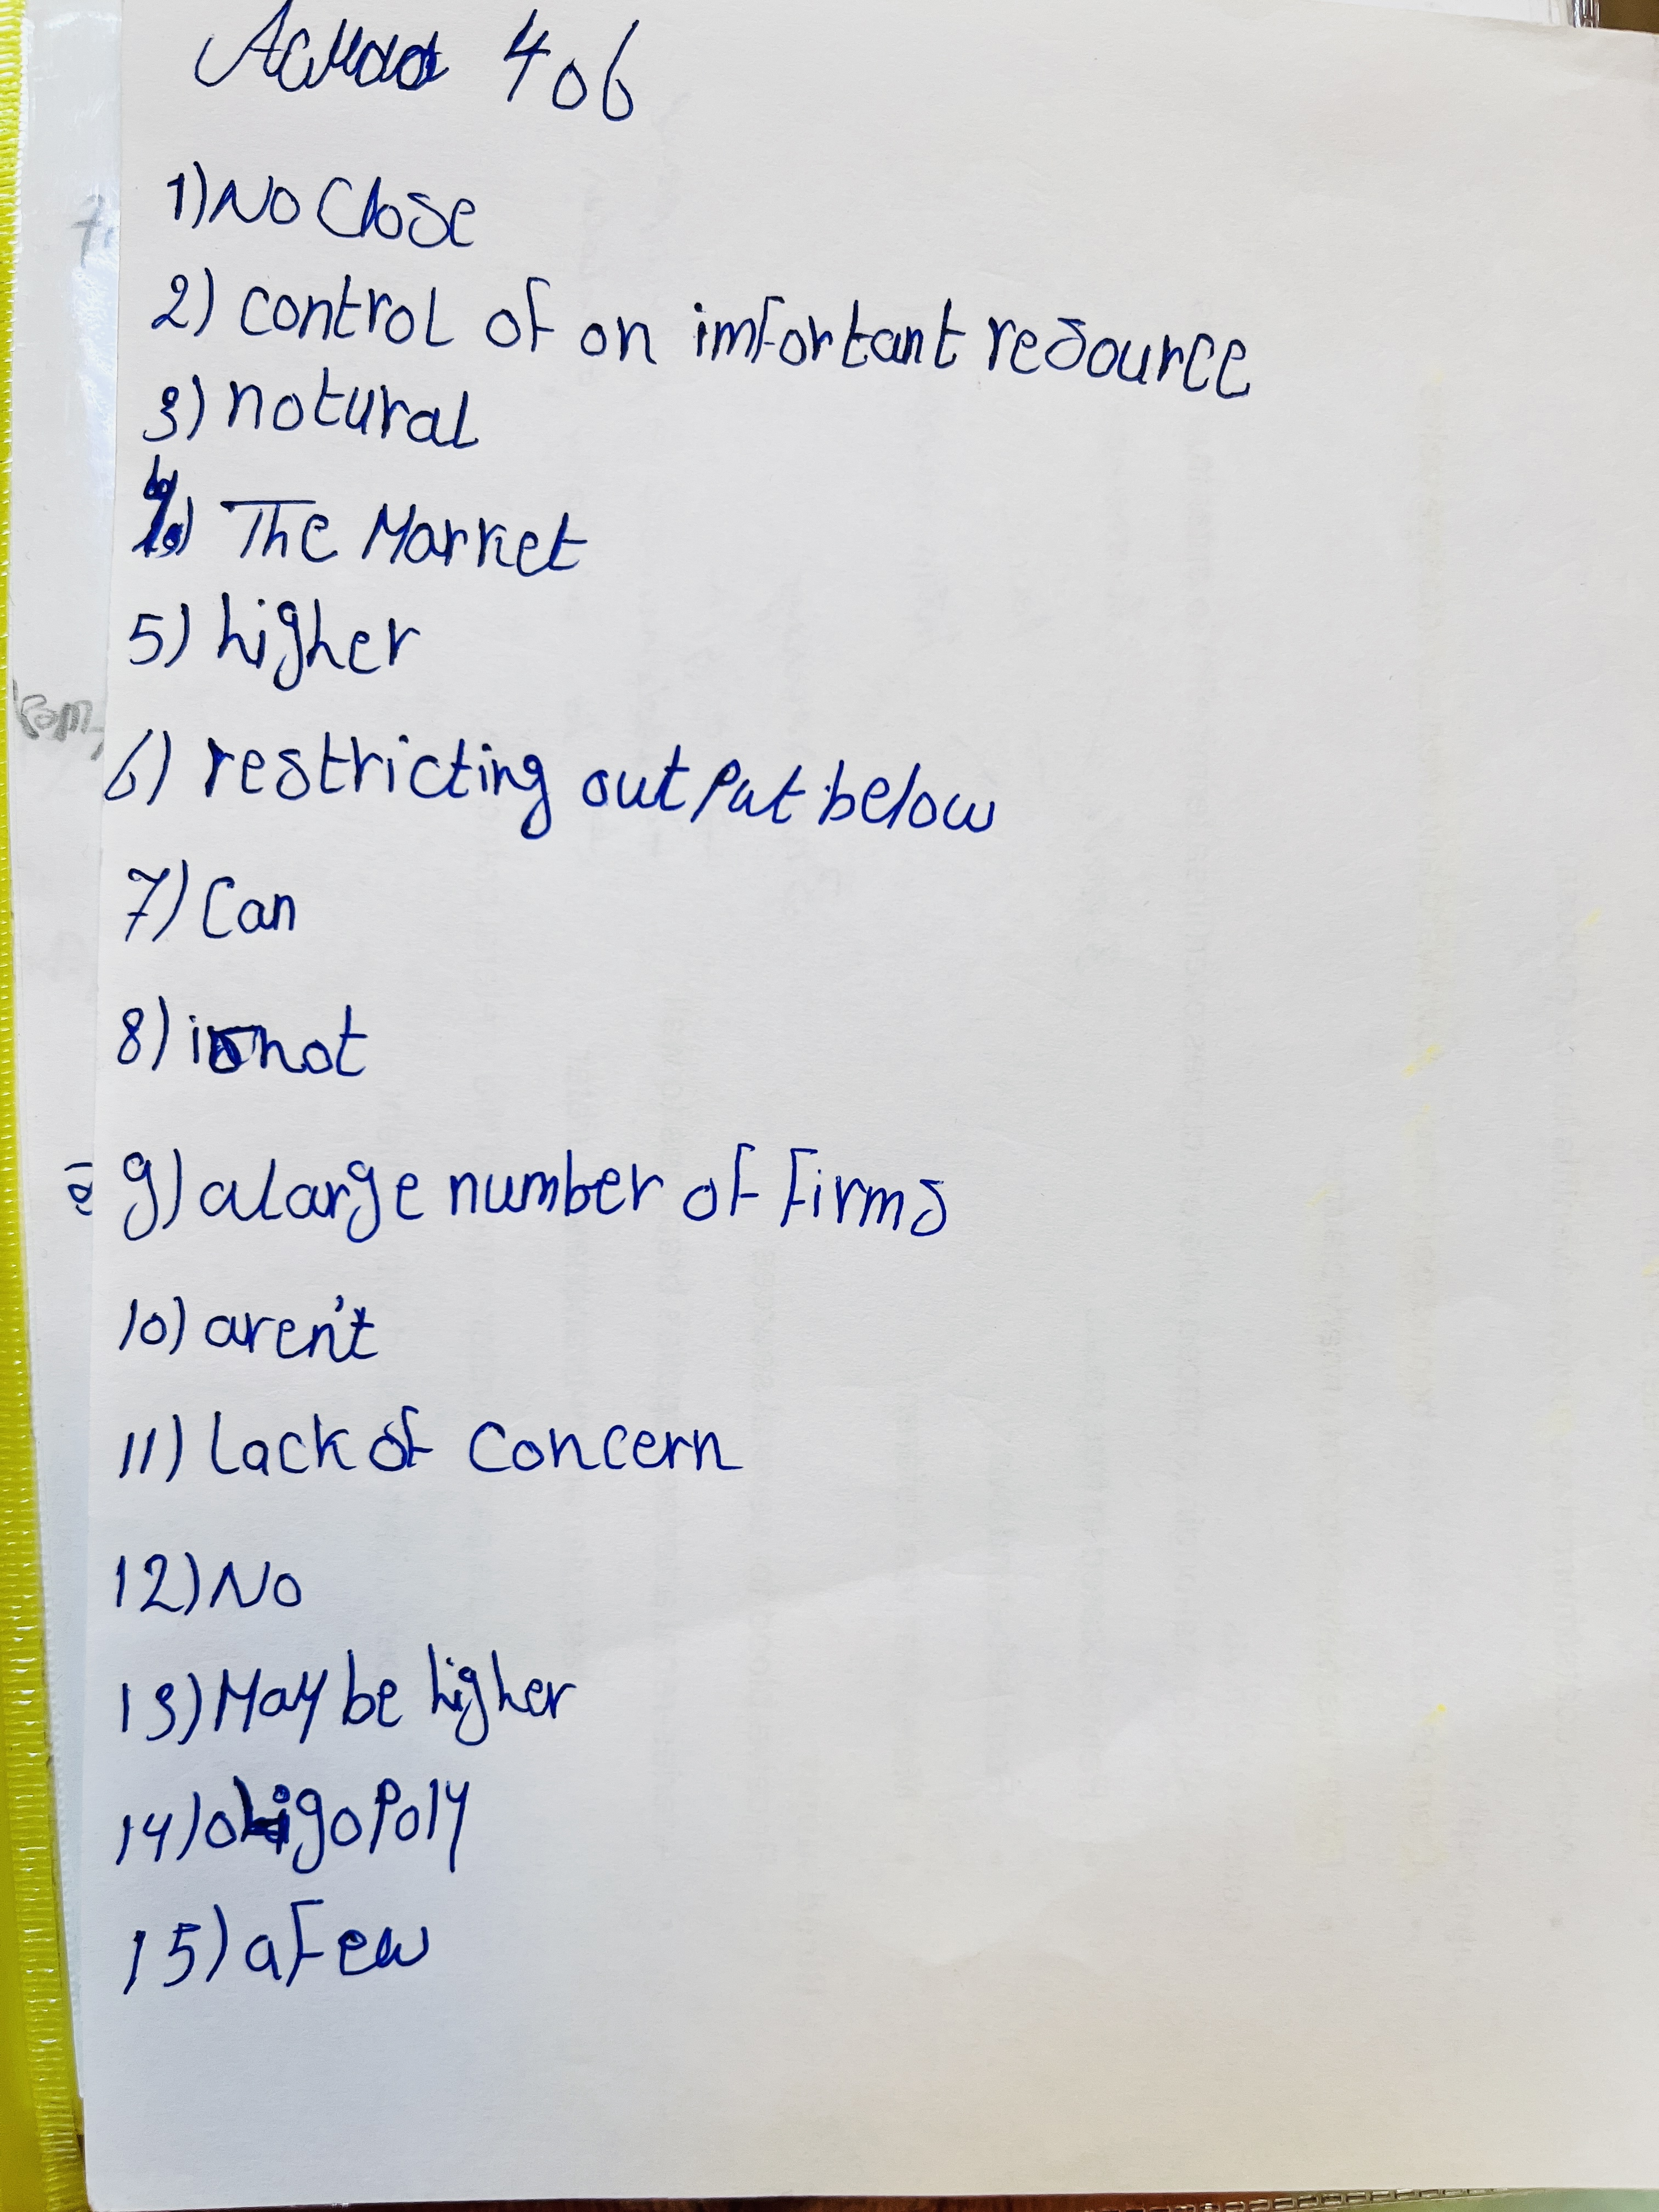 406
1) No Close
2) control of on important resource
3) notural
The Market
5) higher
6) restricting output below
7) Can
8) is not
9) a large number of firms
10) aren't
11) lack of concern
12) No
13) May be higher
14) oligopoly
15) a few